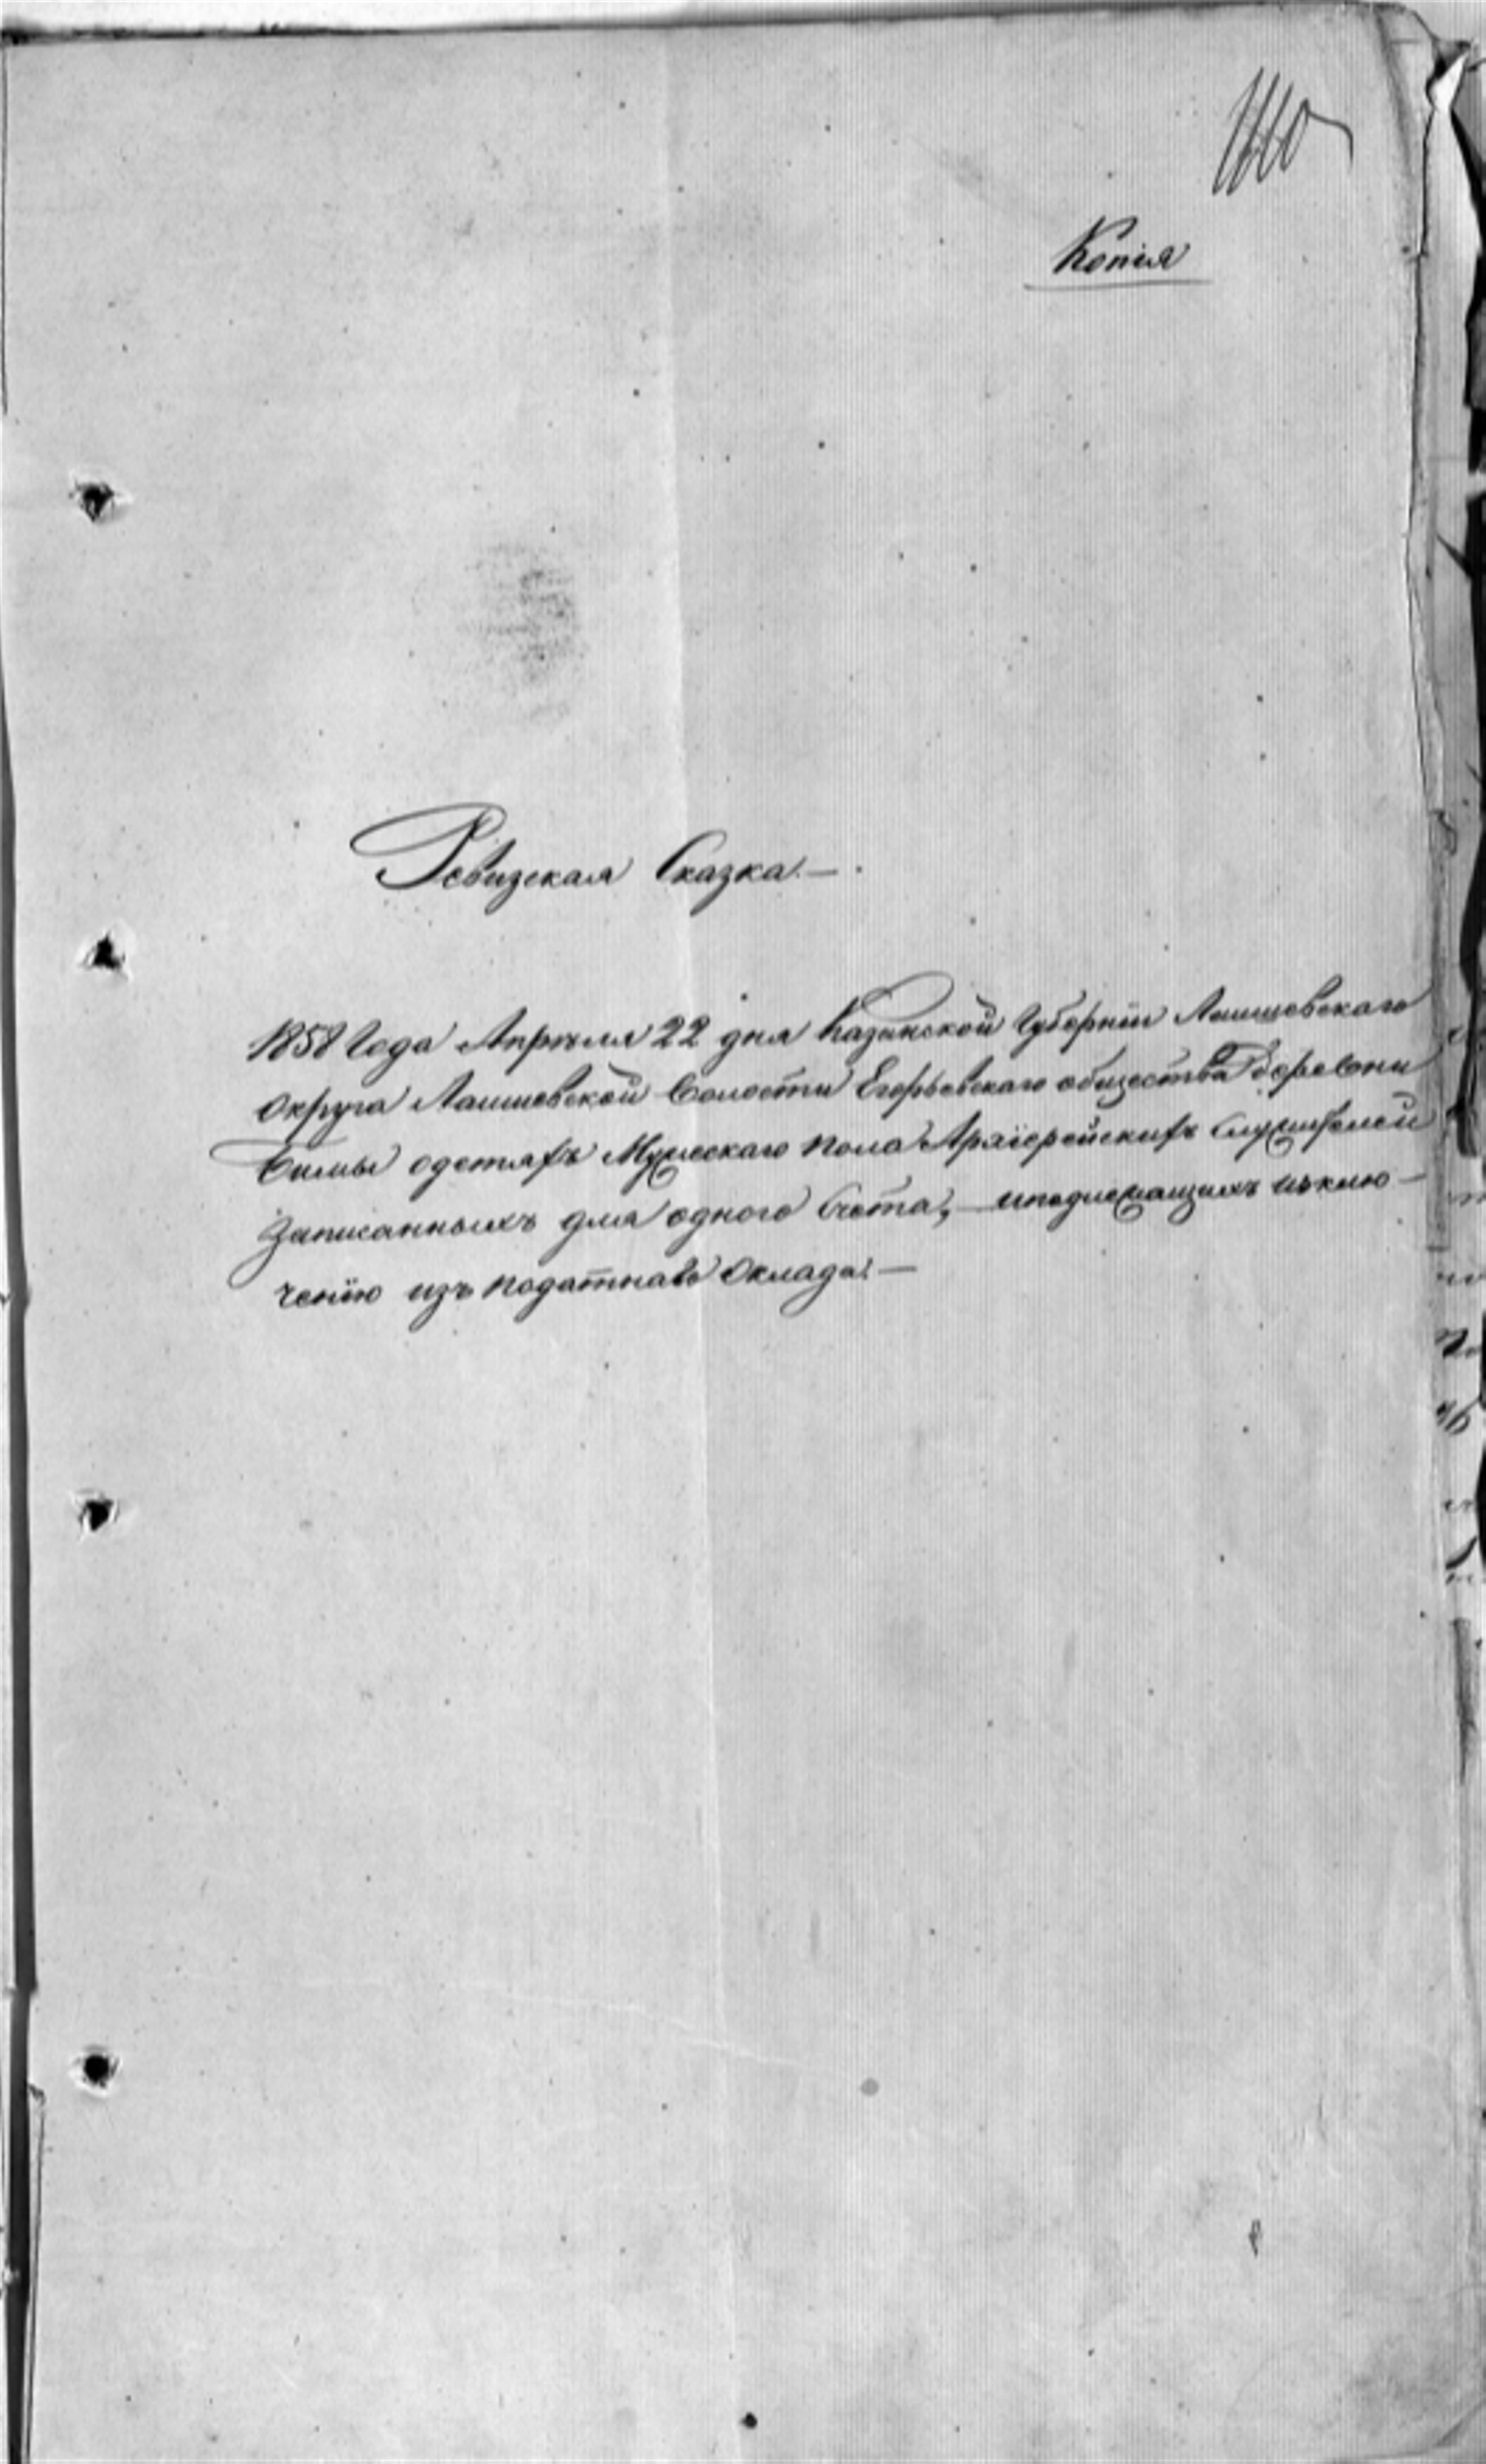 Копія
Ревизская Сказка.—
1858 Года Апрѣля 22 дня Казанской Губерніи Лаишевскаго
Округа Лаишевской Волости Егорьевскаго общества деревни
одетяхъ Мужескаго пола Архіерейскихъ Служителей
Записанныхъ для одного Счета, иподлежащихъ исклю-
ченію изъ податнаго Оклада.—